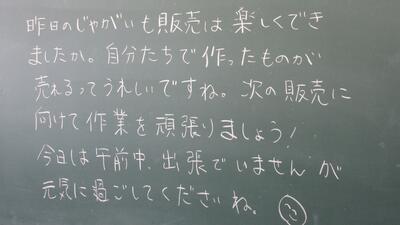 昨日のじゃがいも販売は楽しくでき
ましたか。自分たちで作ったものが
売れるってうれしいですね。次の販売に
向けて作業を頑張りましょう!
今日は午前中、出張でいませんが
元気に過ごしてくださいね。